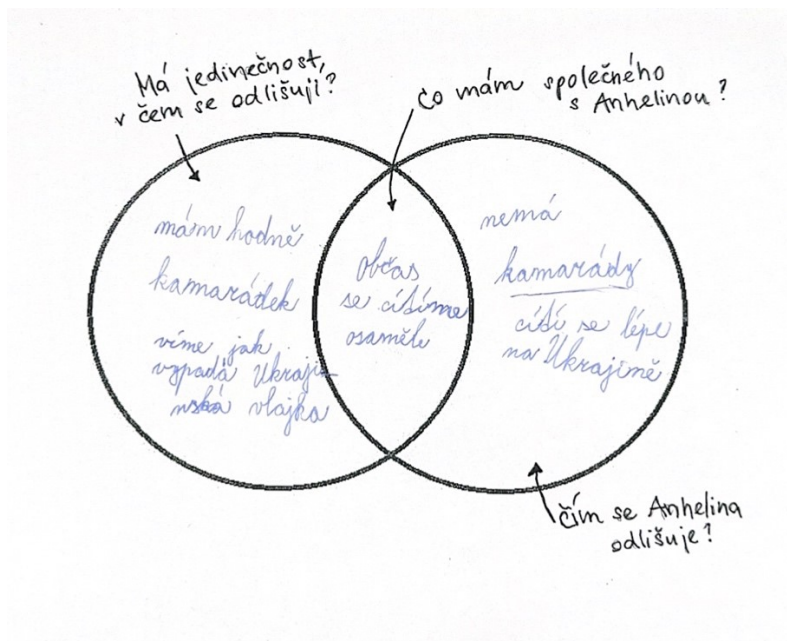 Má jedinečnost,
v čem se odlišuji?
Co mám společného
s Anhelinou?
mám hodně
kamarádek
víme jak
vypadá Ukraji-
nská vlajka
občas
se cítíme
osaměle
nemá
kamarády
cítí se lépe
na Ukrajině
čím se Anhelina
odlišuje?